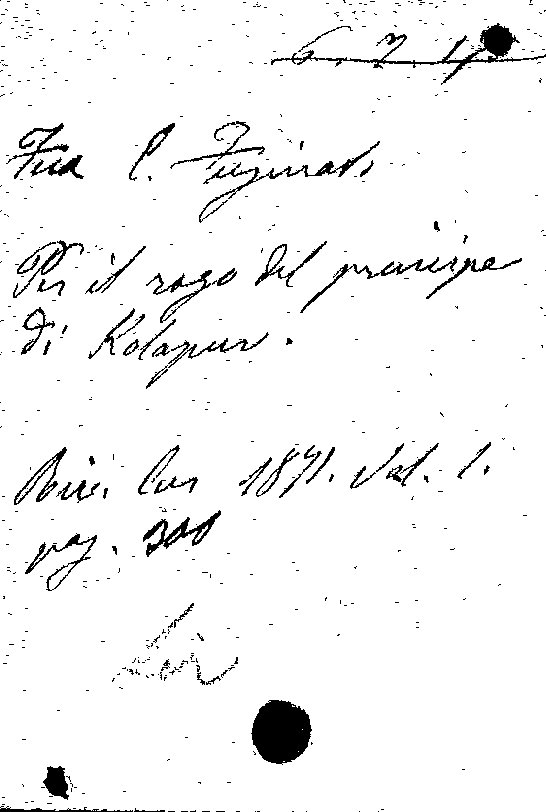 6. 7. 1
Fua C. Fuginati
Per il rogo del principe
di Kolapur.
Riv. Eur 1871. Vol. 1.
pag. 300